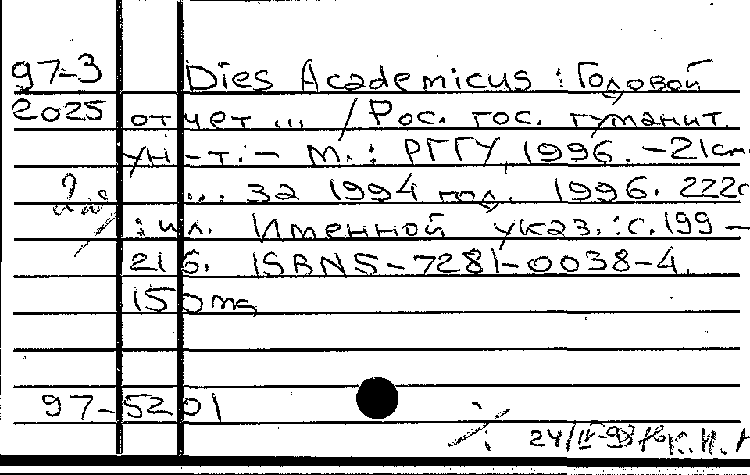 97-3 Dies Academicus : Годовой
2025 отчет ... / Рос. гос. гуманит.
ун-т. - М. : РГГУ, 1996. - 21см.
... за 1994 год. 1996. 222с
: ил. Именной указ. : с. 199 -
216. ISBN 5-7281-0038-4.
150
97-5201
24/II-98 К.И.